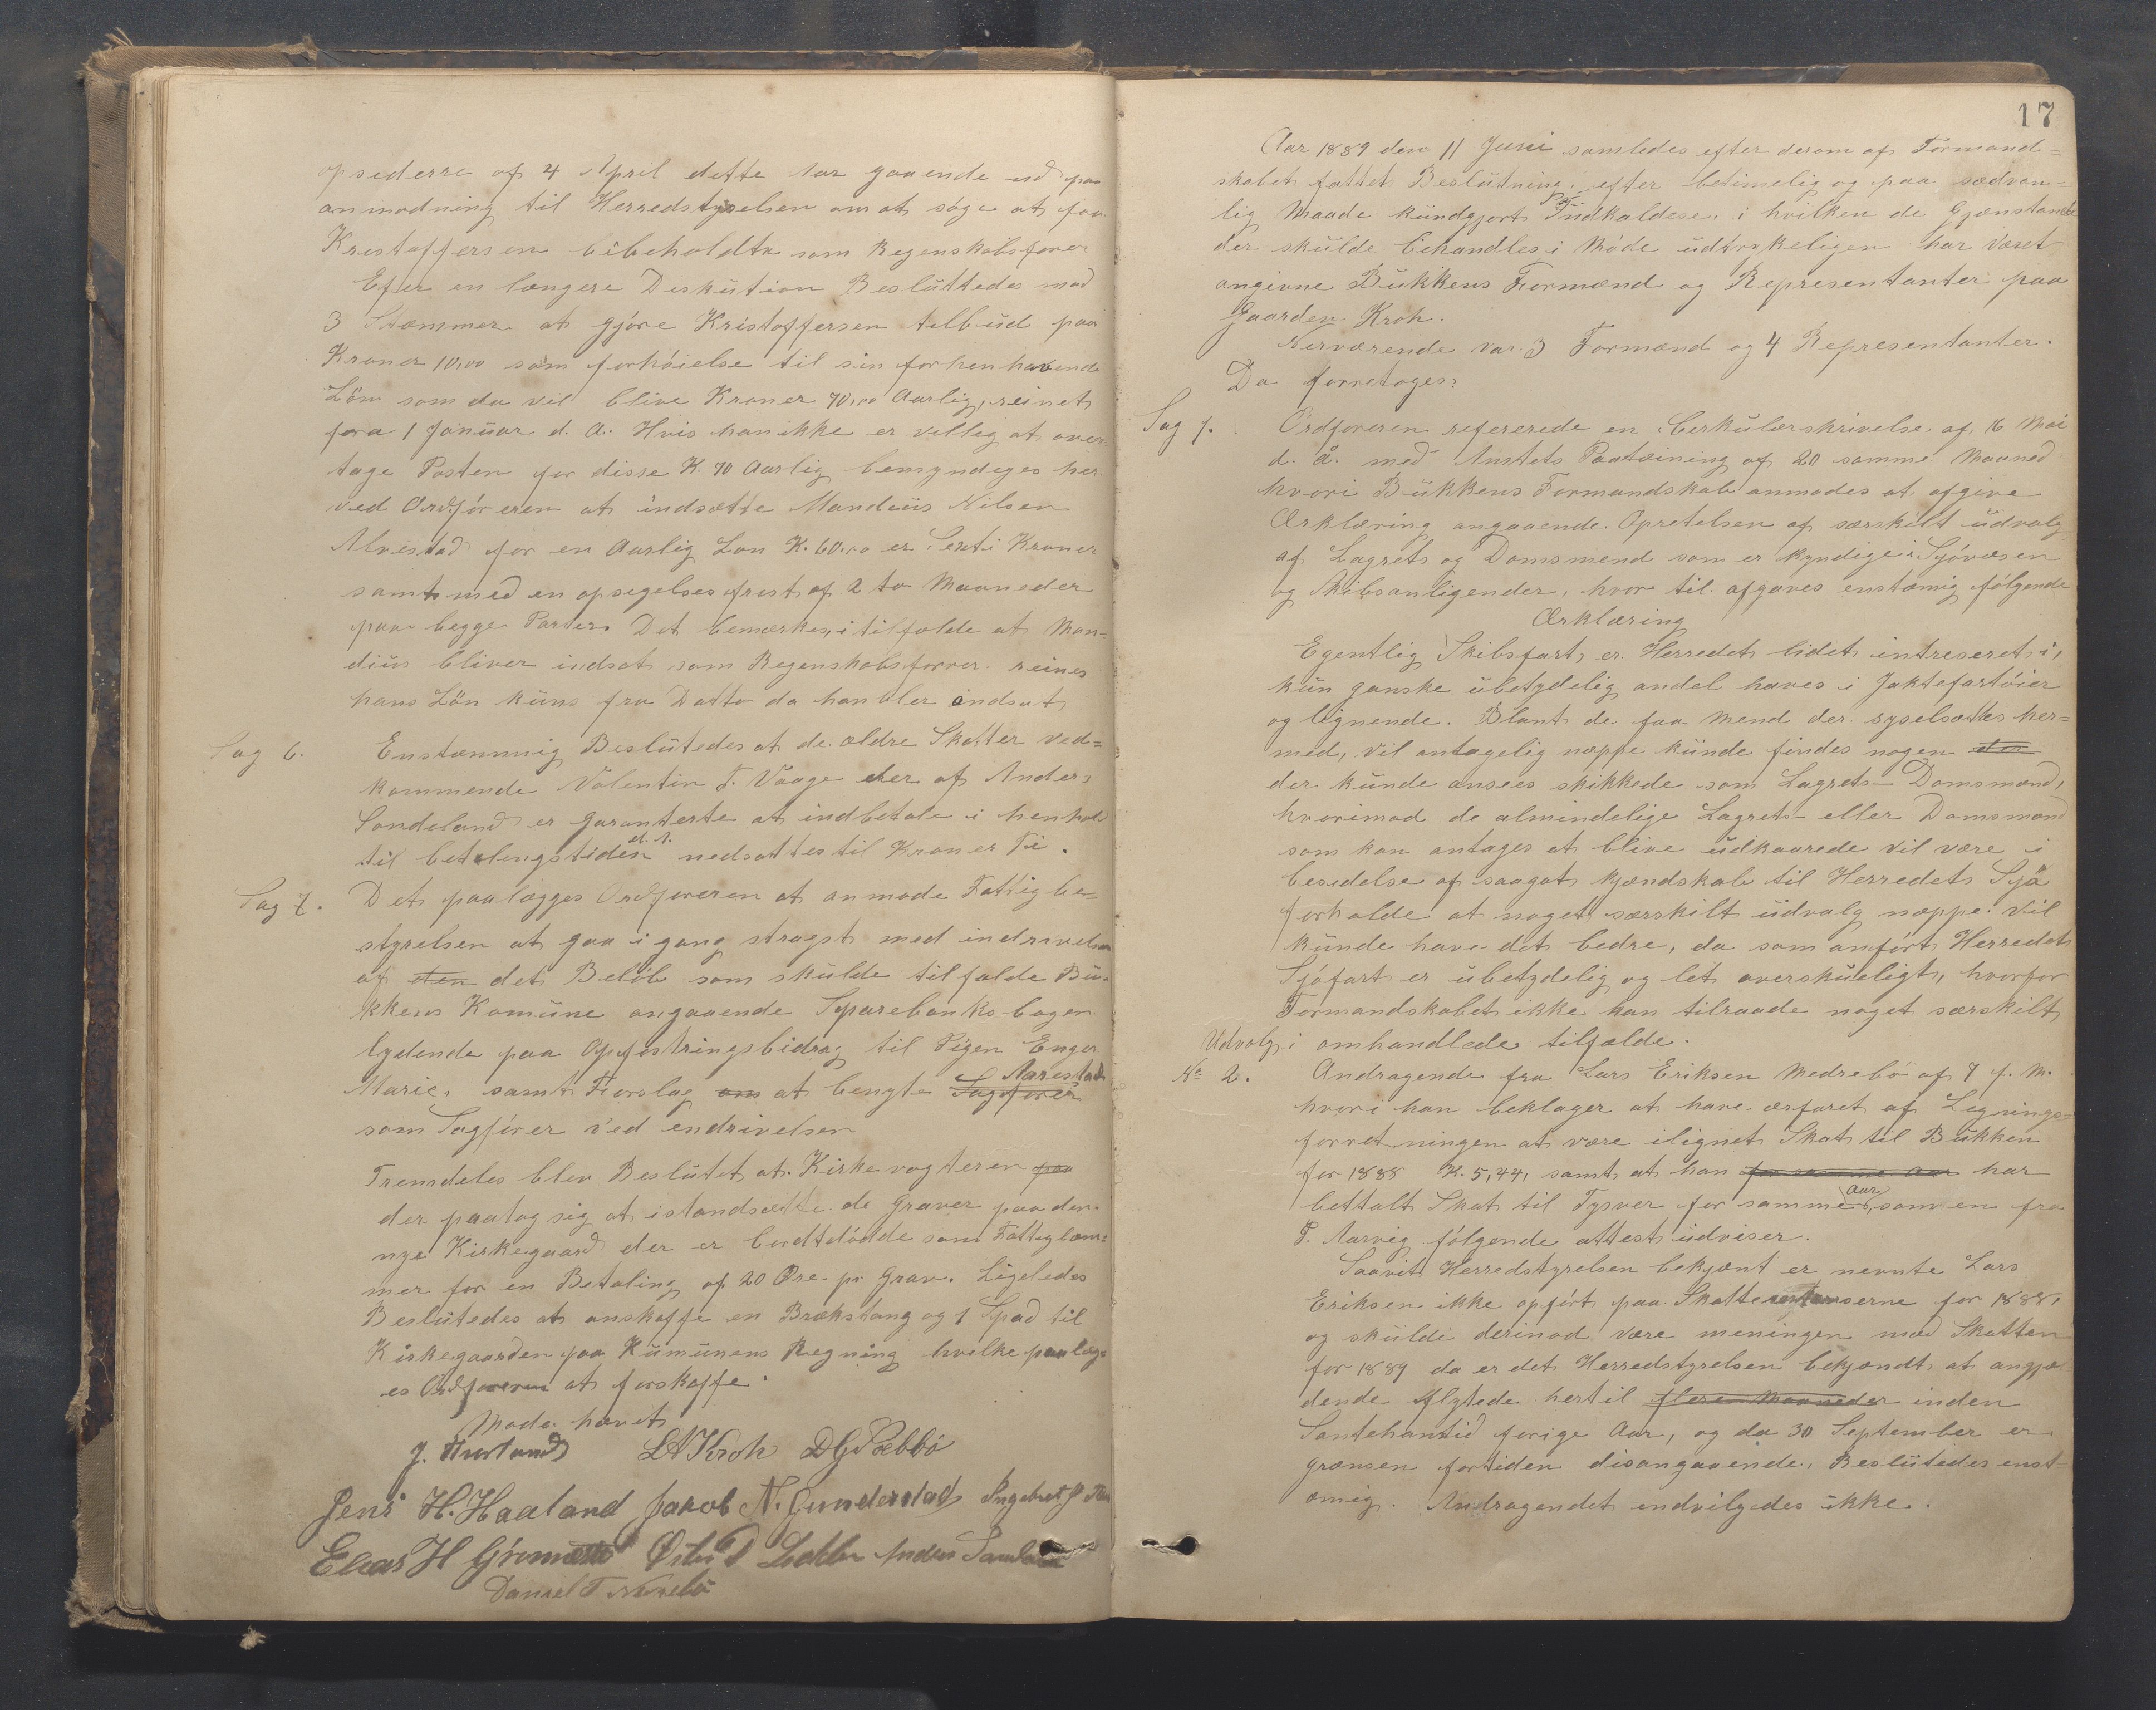 opsederre af 4 April dette Aar gaaende ud paa
anmodning til Herredstyrelsen om at søge at faa
Kristoffersen bibeholdt som Regenskabsfører
Efter en længere Deskution Besluttedes mod
3 Stemmer at gjøre Kristoffersen tilbud paa
Kroner 10,00 som forhøielse til sin forhenhavende
Løn som da vil blive Kroner 70,00 Aarlig, reinet
fra 1 Januar d. A. Hvis han ikke er velleg at over
tage Posten for disse K. 70 Aarlig bemyndeges her
ved Ordføreren at indsætte Mandius Nilsen
Alvestad for en Aarlig Løn K. 60,00 er Sexti Kroner
samt med en opsegelses frist af 2 to Maaneder
paa begge Parter. Det bemærkes, i tilfælde at Man=
dius bliver indsat som Regenskabsfører reines
hans Løn kuns fra Datto da han bler indsat
Sag 6. Enstemmig Beslutedes at de ældre Skatter ved=
kommende Valentin T. Vaage der af Anders
Sandeland er garanterte at indbetale i henhold
til betalingstiden d. A. nedsattes til Kroner Ti.
Sag 7. Det paalægges Ordføreren at anmode Fattigbe=
styrelsen at gaa i gang stragst med indrivelsen
af den det Beløb som skulde tilfalde Bu=
kkens Komune angaaende Sparebanks bogen
lydende paa Opfostringsbidrag til Pigen Enger
Marie, samt Forslag om at bengte Sagfører Aarestad
som Sagfører ved endrivelsen
Fremdeles blev Beslutet at Kirkevogteren paa
der paatog sig at istandsætte de Graver paa den
nye Kirkegaard der er bordtdødde som Fattiglem=
mer for en Betaling af 20 Øre pr Grav. Ligeledes
Beslutedes at anskaffe en Brækstang og 1 Spad til
Kirkegaarden paa Kumunens Regning hvilke paalæg
es Ordføreren at forskaffe.
Møde hævet
LA Krok DG Sæbbø
Jens H. Haaland Jakob N. Gunderstad
Elias H Daniel T
17
Aar 1889 den 11 Juni samledes efter derom af Formand=
skabet fattet Beslutning, efter betimelig og paa sædvan=
lig Maade kundgjort Indkaldese i hvilken de Gjenstande
der skulde behandles i Møde udtrykeligen har været
angivne Bukkens Formænd og Representanter paa
Gaarden Krok.
Nerværende var 3 Formænd og 4 Representanter.
Da forretoges:
Sag 1. Ordføreren refererede en Cerkulærskrivelse af 16 Mai
d. å. med Amtets Paategning af 20 samme Maaned
hvori Bukkens Formandskab anmodes at afgive
Ærklæring angaaende Opretelsen af særskilt udvalg
af Lagrets og Domsmend som er kyndige i Sjøvæsen
og Skibsanligender, hvor til afgaves enstemig følgende
Ærklæring
Egentlig Skibsfart, er Herredet lidet intreseret i,
kun ganske ubetydelig andel haves i Jaktefartøier
og lignende. Blant de faa Mend der syselsættes her=
med, vil antagelig næppe kunde findes nogen der
der kunde ansees skikkede som Lagrets- Domsmænd,
hvorimod de almindelige Lagrets eller Domsmænd
som kan antages at blive udkaarede vil være i
besedelse af saagat kjændskab til Herredets Sjø
forholde at noget særskilt udvalg næppe vil
kunde have det bedre, da som anført Herredets
Sjøfart er ubetydelig og let overskueligt, hvorfor
Formandskabet ikke kan tilraade noget særskilt
Udvalg i omhandlede tilfælde.
No 2. Andragende fra Lars Eriksen Medrebø af 7 f. M.
hvori han beklager at have ærfaret af Lignings=
forretningen at være ilignet Skat til Bukken
for 1888 K. 5,44, samt at han for samme Aar har
bettalt Skat til Tysver for samme Aar, som en fra
T. Aarvig følgende attest udviser.
Saavit Herredstyrelsen bekjænt er nevnte Lars
Eriksen ikke opført paa Skatte for 1888,
og skulde derimod være meningen med Skatten
for 1889 da er det Herredstyrelsen bekjændt, at angjæl
dende flytede hertil flere Maaneder inden
Santehanstid forige Aar, og da 30 September er
grænsen fortiden disangaaende, Beslutedes enst
emig. Andragendet indvilgedes ikke.